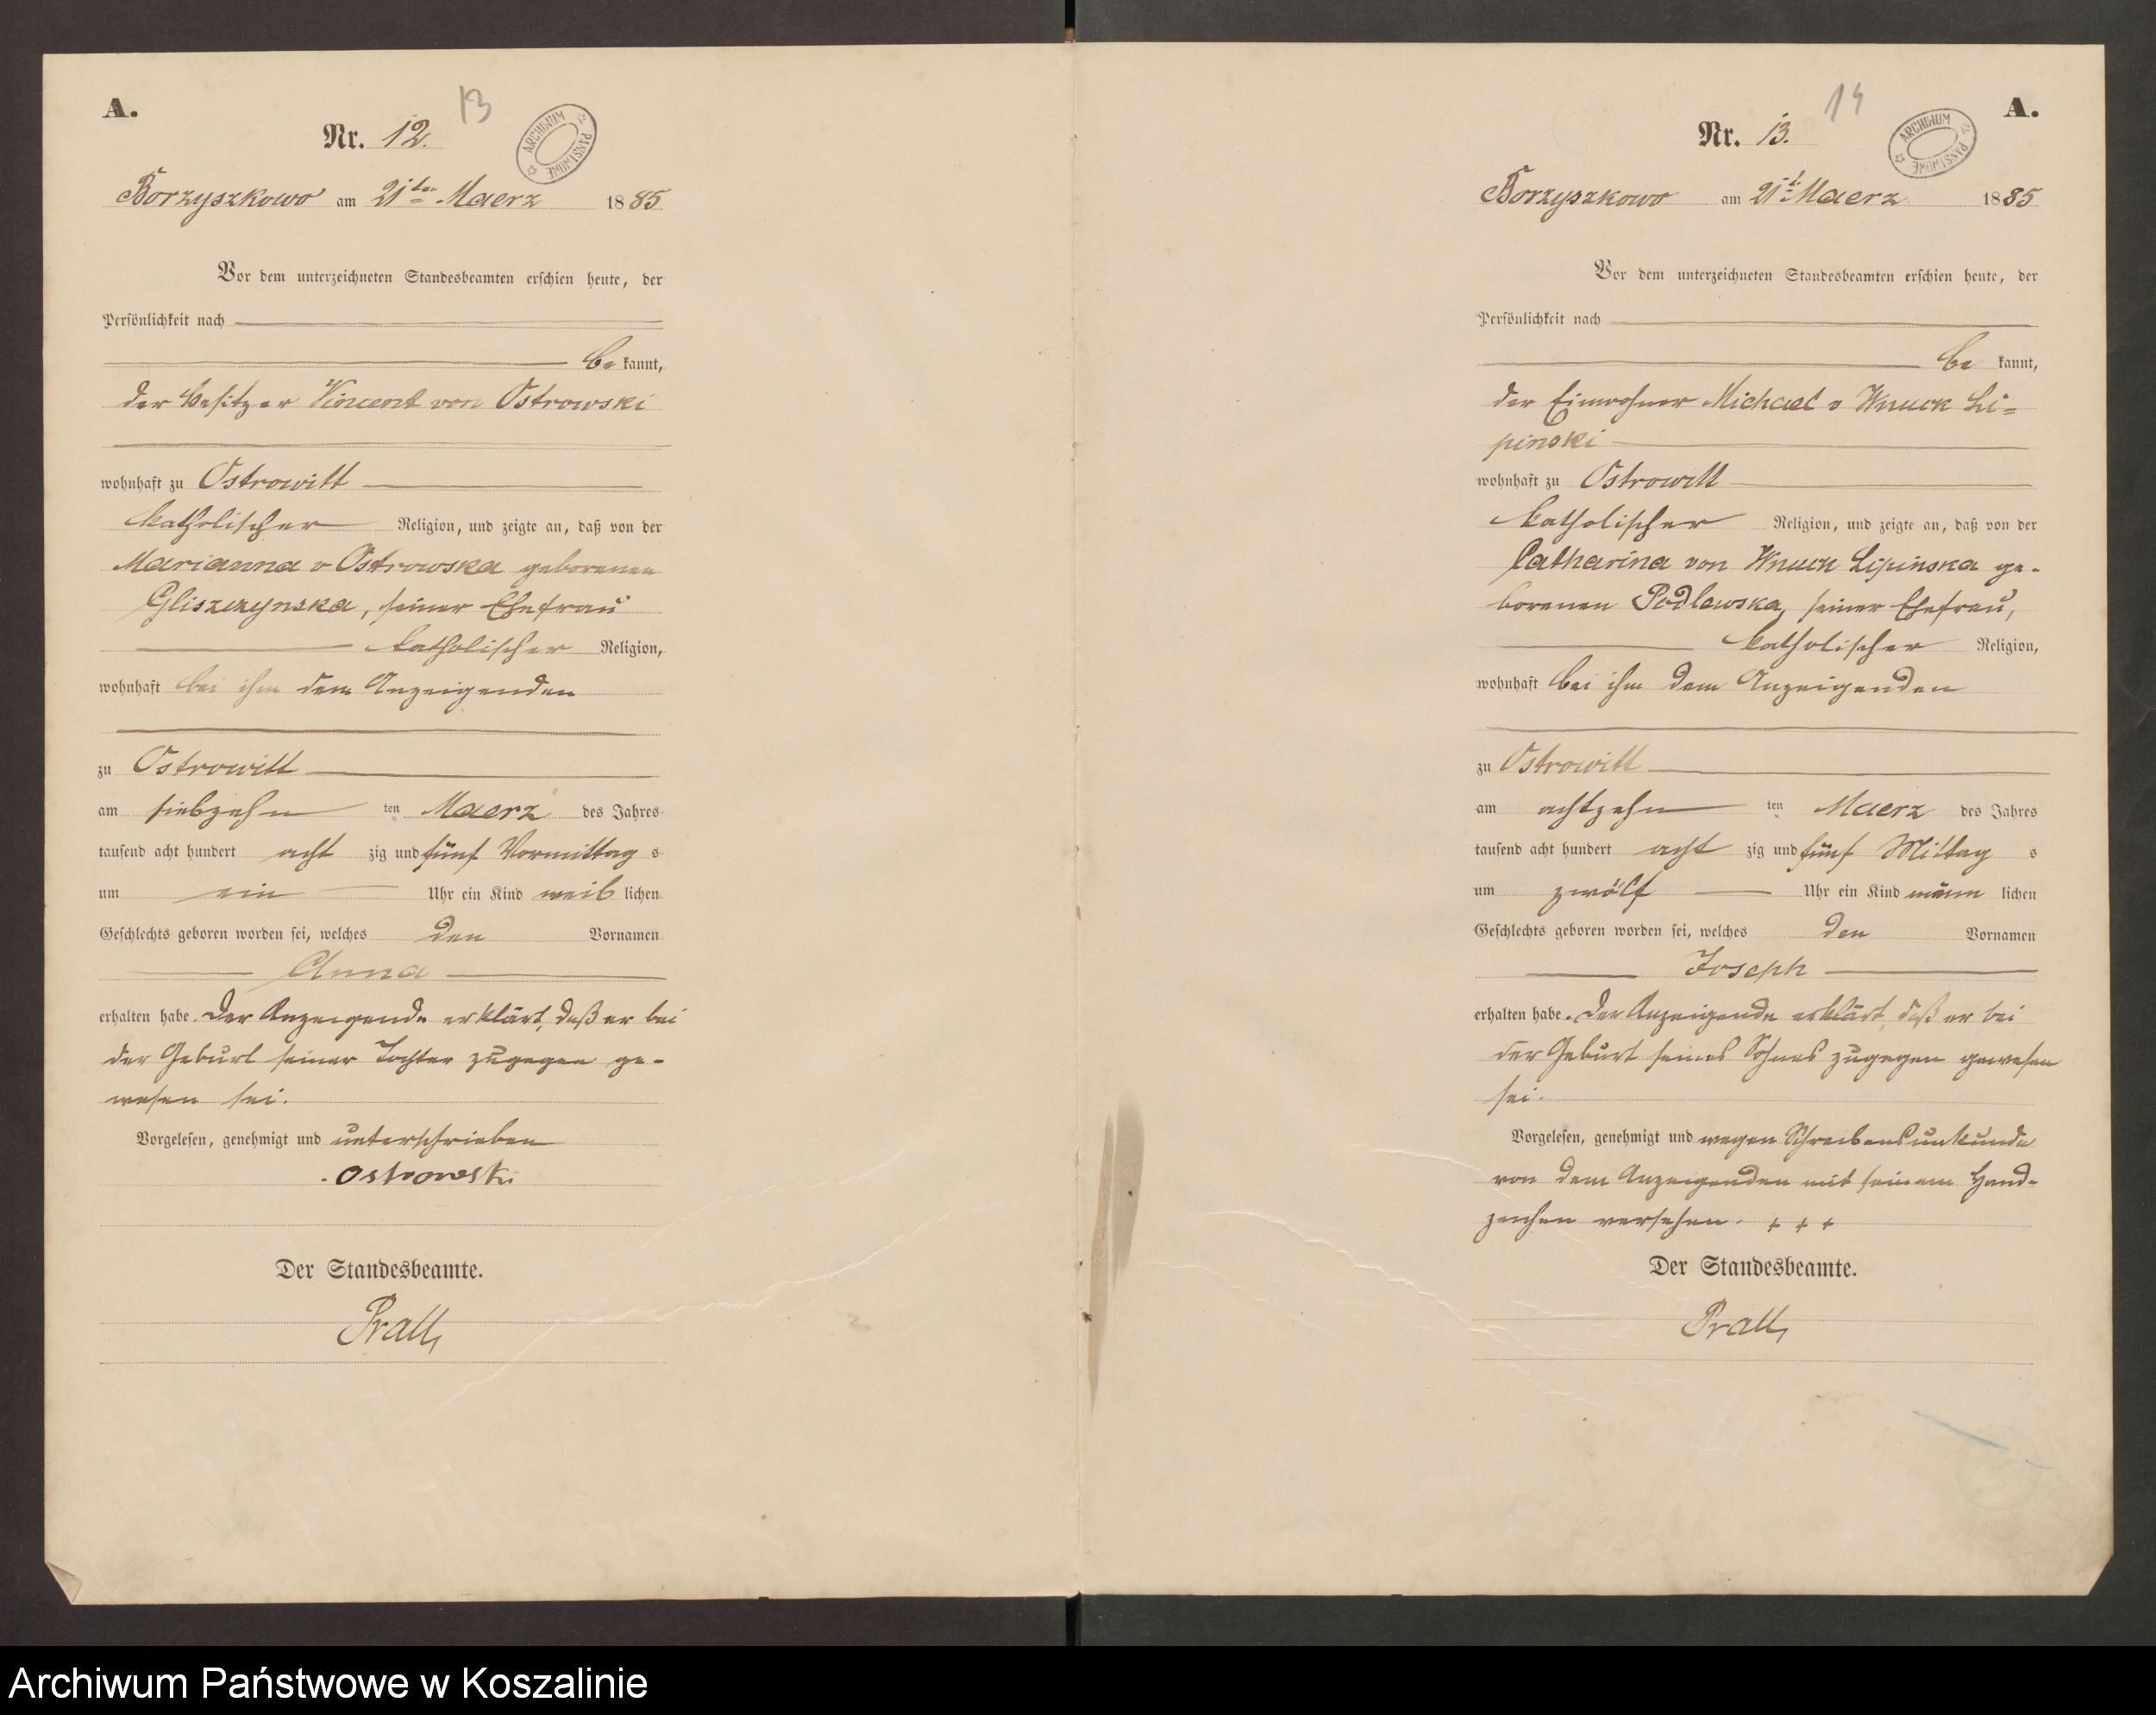 A.
13
Nr. 12.
ARCHIWUM PAŃSTWOWE
Borzyszkowo am 21ten Maerz 1885
Vor dem unterzeichneten Standesbeamten erschien heute, der
Persönlichkeit nach
be kannt,
der Besitzer Vincent von Ostrowski
wohnhaft zu Ostrowitt
katholischer Religion, und zeigte an, daß von der
Marianna v Ostrowska geborenen
Gliszczynska, seiner Ehefrau
katholischer Religion,
wohnhaft bei ihm dem Anzeigenden
zu Ostrowitt
am siebzehn ten Maerz des Jahres
tausend acht hundert acht zig und fünf Vormittag s
um ein Uhr ein Kind weib lichen
Geschlechts geboren worden sei, welches den Vornamen
Anna
erhalten habe. Der Anzeigende erklärt, daß er bei
der Geburt seiner Tochter zugegen ge-
wesen sei.
Vorgelesen, genehmigt und unterschrieben
Ostrowski
Der Standesbeamte.
Prall
14
A.
Nr. 13.
ARCHIWUM PAŃSTWOWE
Borzyszkowo am 21t Maerz 1885
Vor dem unterzeichneten Standesbeamten erschien heute, der
Persönlichkeit nach
be kannt,
der Einwohner Michael v Wnuck Li=
pinski
wohnhaft zu Ostrowitt
katholischer Religion, und zeigte an, daß von der
Catharina von Wnuck Lipinska ge-
borenen Podlewska, seiner Ehefrau,
katholischer Religion,
wohnhaft bei ihm dem Anzeigenden
zu Ostrowitt
am achtzehn ten Maerz des Jahres
tausend acht hundert acht zig und fünf Mittag s
um zwölf Uhr ein Kind männ lichen
Geschlechts geboren worden sei, welches den Vornamen
Joseph
erhalten habe. Der Anzeigende erklärt, daß er bei
der Geburt seines Sohnes zugegen gewesen
sei.
Vorgelesen, genehmigt und wegen Schreibensunkunde
von dem Anzeigenden mit seinem Hand-
zeichen versehen. + + +
Der Standesbeamte.
Prall
Archiwum Państwowe w Koszalinie